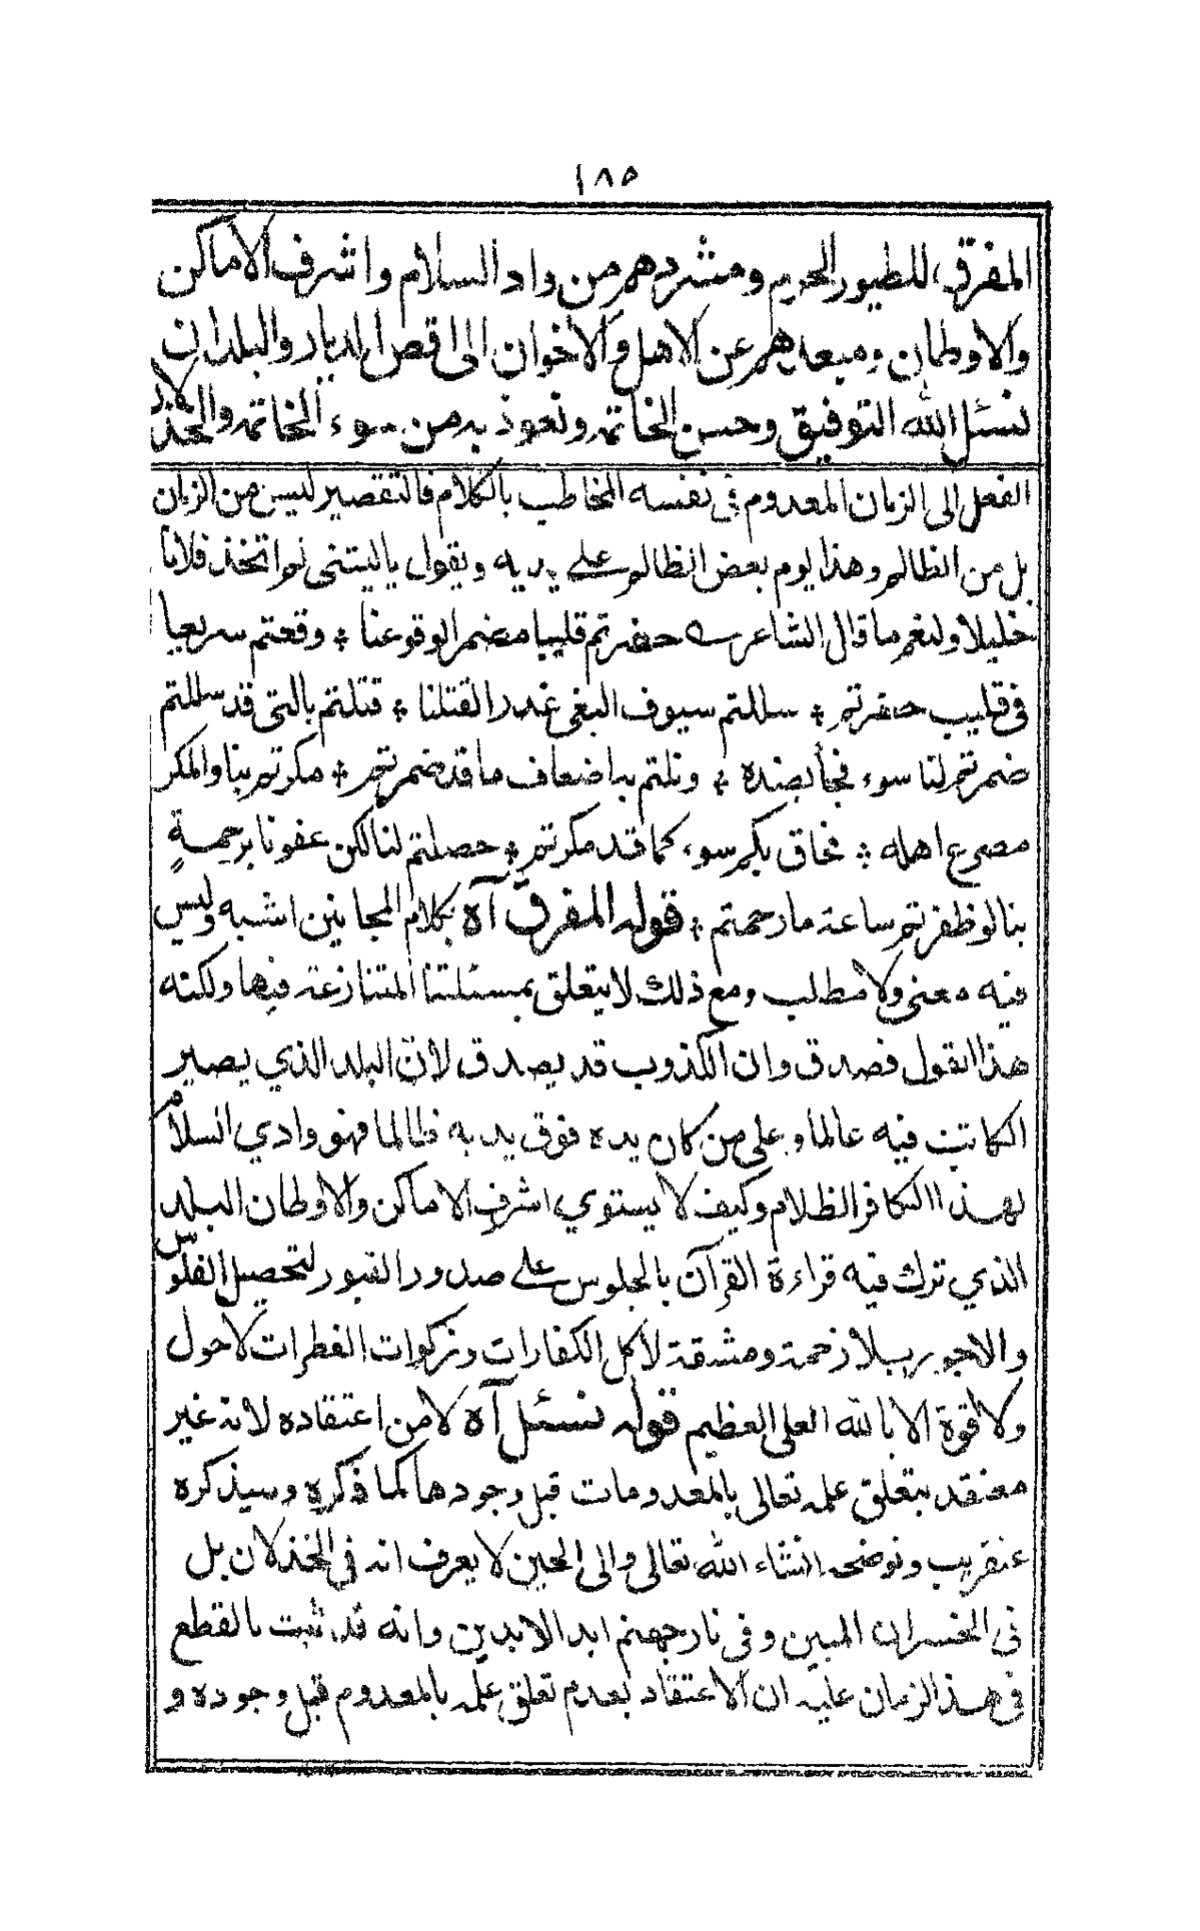 ١٨٥
المفرق للطيور الحرم ومشردهم من واد السلام واشرف الاماكن
والاوطان ومبعدهم عن الاهل والاخوان الى اقصى الديار والبلدان
نسئل الله التوفيق وحسن الخاتمه ونعوذ به من سوء الخاتمه والخذلان
الفعل الى الزمان المعدوم فى نفسه المخاطب بالكلام فالتقصير ليس من الزمان
بل من الظالم وهذا يوم بعض الظالم على يديه ويقول ياليتنى لم اتخذ فلانا
خليلا ولنعم ما قال الشاعر حفرتم قليبا مضمرا لوقوعنا * وقعتم سريعا
فى قليب حفرتم * سللتم سيوف البغى غدرا لقتلنا * قتلتم بالتى قد سللتم
ضمرتم لنا سوء فجأ بضده * ونلتم به اضعاف ما قد ضمرتم * مكرتم بنا والمكر
مصرع اهله * فحاق بكم سوء كما قد مكرتم * حصلتم لنا لكن عفونا برحمةٍ
بنا لو ظفرتم ساعة ما رحمتم * قوله المفرق آه بكلام المجانين اشبه وليس
فيه معنى ولا مطلب ومع ذلك لا يتعلق بمسئلتنا المتنازعة فيها ولكنه
هذا القول فصدق وان الكذوب قد يصدق لان البلد الذي يصير
الكاتب فيه عالما وعلى من كان يده فوق يديه ظالما فهو وادي السلام
لهذا الكافر الظلام وكيف لا يستوي اشرف الاماكن والاوطان البلد
الذي ترك فيه قراءة القرآن بالجلوس على صدور القبور لتحصيل الفلوس
والاجور بلا زحمة ومشقة لاكل الكفارات وزكوات الفطرات لاحول
ولا قوة الا بالله العلى العظيم قوله نسئل آه لا من اعتقاده لانه غير
معتقد بتعلق علمه تعالى بالمعدومات قبل وجودها كما ذكره وسيذكره
عنقريب ونوضحه انشاء الله تعالى والى الحين لا يعرف انه فى الخذلان بل
فى الخسران المبين وفى نار جهنم ابد الابدين وانه قد ثبت بالقطع
فى هذا الزمان عليه ان الاعتقاد بعدم تعلق علمه بالمعدوم قبل وجوده و